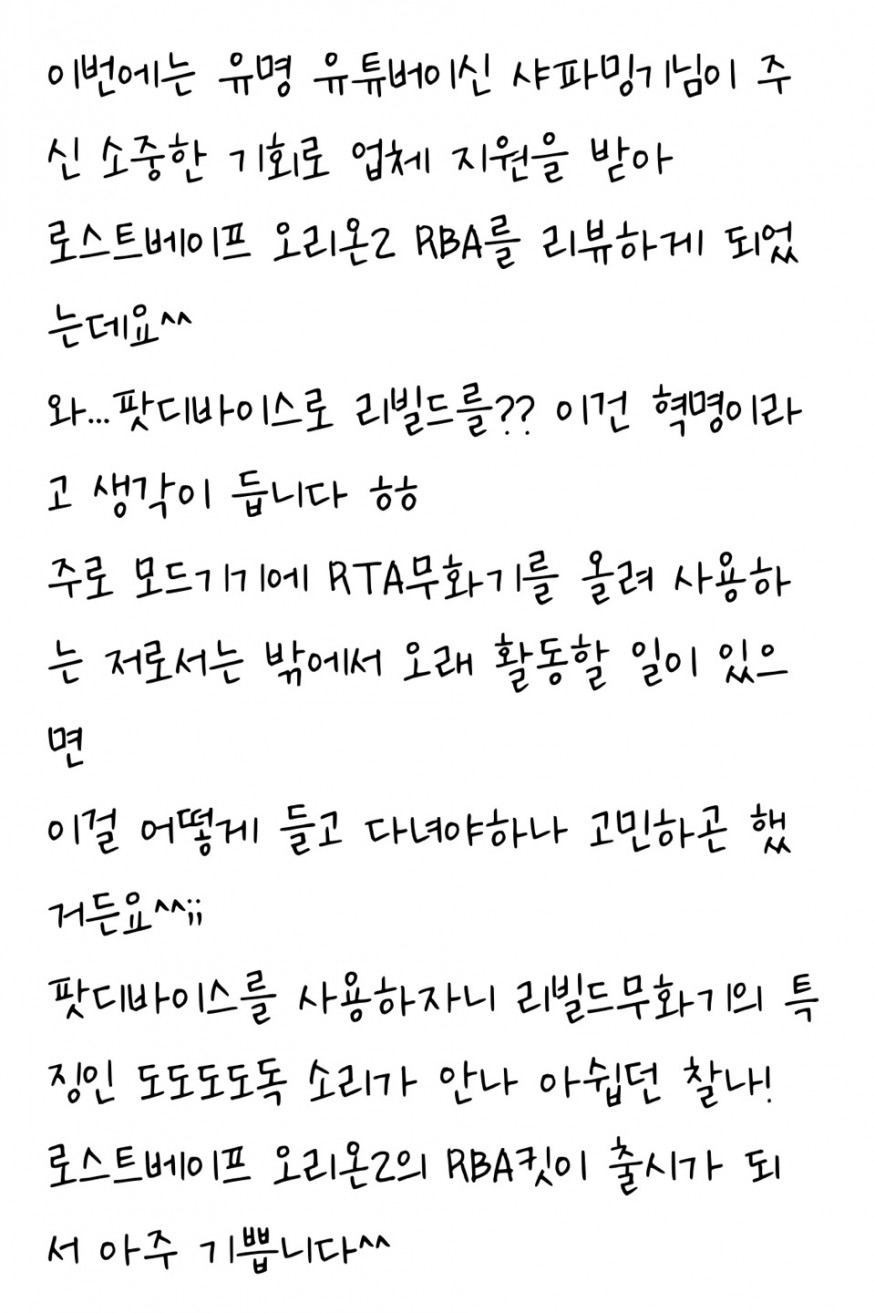 이번에는 유명 유튜버이신 샤파밍기님이 주
신 소중한 기회로 업체 지원을 받아
로스트베이프 오리온2 RBA를 리뷰하게 되었
는데요^^
와...팟디바이스로 리빌드를?? 이건 혁명이라
고 생각이 듭니다 ㅎㅎ
주로 모드기기에 RTA무화기를 올려 사용하
는 저로서는 밖에서 오래 활동할 일이 있으
면
이걸 어떻게 들고 다녀야하나 고민하곤 했
거든요^^;;
팟디바이스를 사용하자니 리빌드무화기의 특
징인 도도도도독 소리가 안나 아쉽던 찰나!
로스트베이프 오리온2의 RBA킷이 출시가 되
서 아주 기쁩니다^^